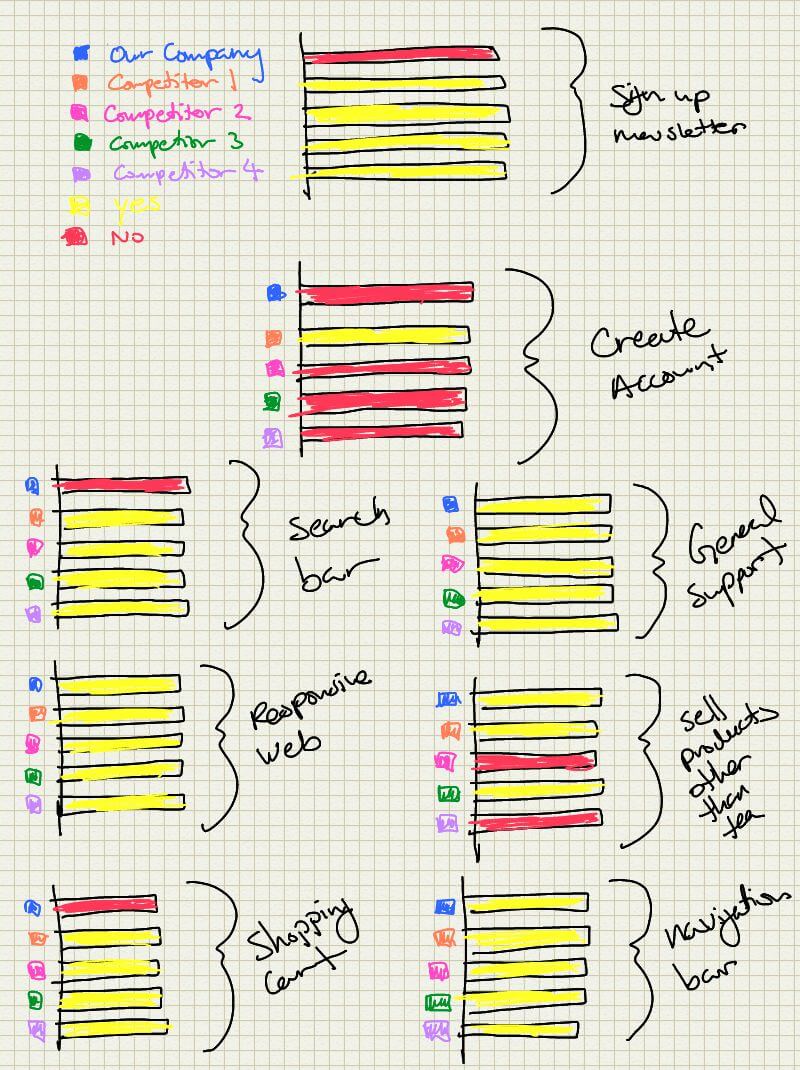 Our Company
Competitor 1
Competitor 2
Competior 3
Competitor 4
yes
No
Sign up
newsletter
Create
Account
Search
bar
General
Support
Responsive
Web
sell
products
other
than
tea
Shopping
Cart
navigation
bar